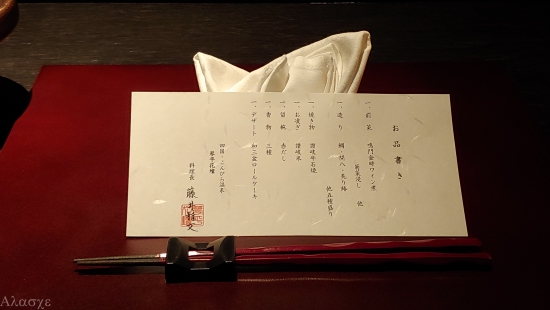 お品書き
一、前菜 鳴門金時ワイン煮
菊菜浸し 他
一、造り 鯛・間八・炙り鰆
他五種盛り
一、焼き物 讃岐牛石焼
一、お凌ぎ 讃岐米
一、留椀 赤だし
一、香物 三種
一、デザート 和三盆ロールケーキ
四国・こんぴら温泉
琴平花壇
料理長 藤井
Αλασχε